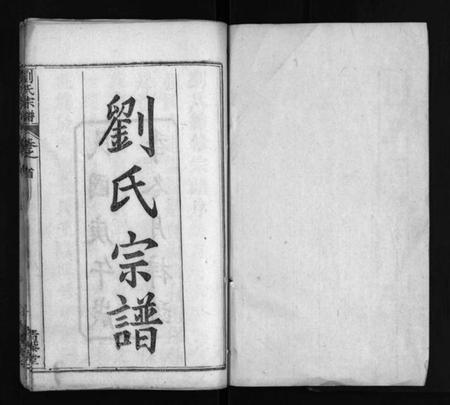 劉氏宗譜
劉氏宗譜
卷之首